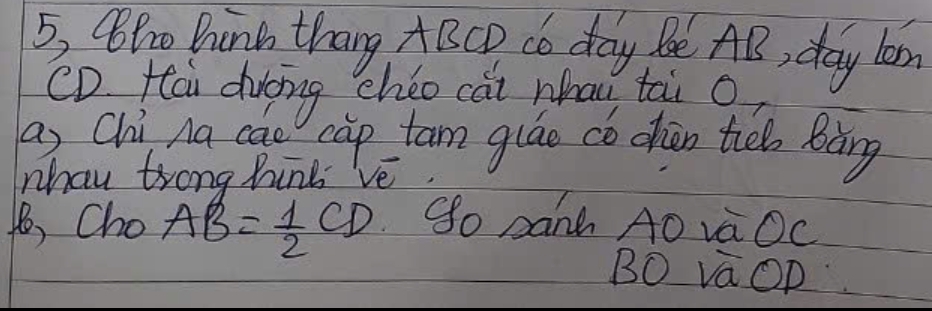 5, Cho hình thang ABCD có đáy bé AB, đáy lớn
CD. Hai đường chéo cắt nhau tại O,
a, Chỉ ra các cặp tam giác có diện tích bằng
nhau trong hình vẽ.
b, Cho AB = \frac{1}{2} CD. So sánh AO và OC
BO và OD.